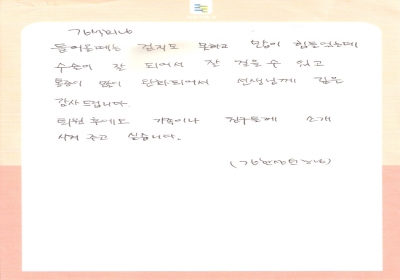 들어올때는 걷지도 못하고 모습이 힘들었는데
수술이 잘 되어서 잘 걸을수 있고
통증이 많이 완화되어서 선생님께 깊은
감사드립니다.
퇴원후에도 가족이나 친구들께 소개
시켜 주고 싶습니다.